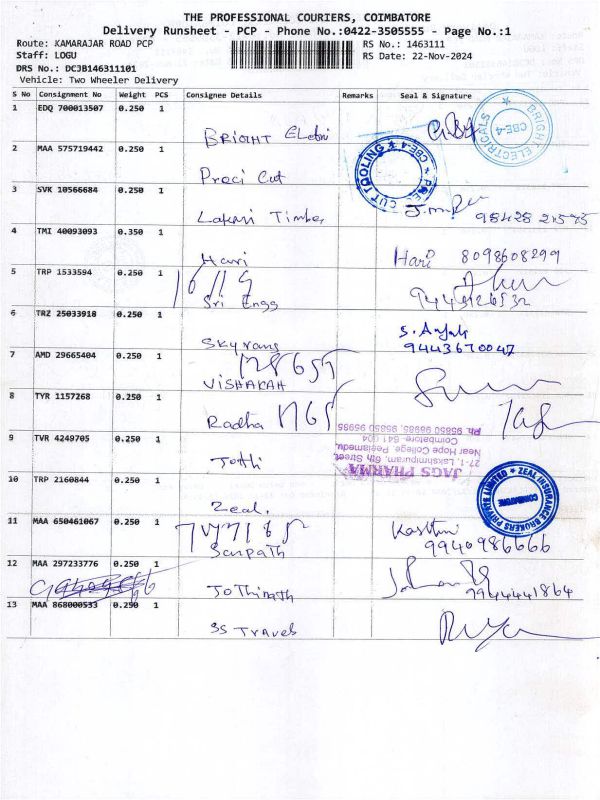 THE PROFESSIONAL COURIERS, COIMBATORE
Delivery Runsheet - PCP - Phone No.:0422-3505555 - Page No.:1
Route: KAMARAJAR ROAD PCP RS No.: 1463111
Staff: LOGU RS Date: 22-Nov-2024
DRS No.: DCJB146311101
Vehicle: Two Wheeler Delivery
S No Consignment No Weight PCS Consignee Details Remarks Seal & Signature
1 EDQ 700013507 0.250 1
BRIGHT
BRIGHT ELECTRICALS CBE-4
2 MAA 575719442 0.250 1
Preci Cut
PRECI CUT TOOLING CBE-4
3 SVK 10566684 0.250 1
Laksmi Timber
4 TMI 40093093 0.350 1
Hari Hari 8098608299
5 TRP 1533594 0.250 1
Sri Engg
6 TRZ 25033918 0.250 1
Skyrams 9443670047
7 AMD 29665404 0.250 1
VISHAKAH
8 TYR 1157268 0.250 1
Radha
9 TVR 4249705 0.250 1
Jothi
JAGS PHARMA
27-1, Lakshmipuram, 6th Street,
Near Hope College, Peelamedu,
Coimbatore - 641 004
Ph: 95850 95985, 95850 95985
10 TRP 2160844 0.250 1
Zeal.
ZEAL INSURANCE BROKERS PRIVATE LIMITED COIMBATORE
11 MAA 650461067 0.250 1
Sanpath 9940986666
12 MAA 297233776 0.250 1
Jothinath 7944441864
13 MAA 868000533 0.250 1
SS Travels